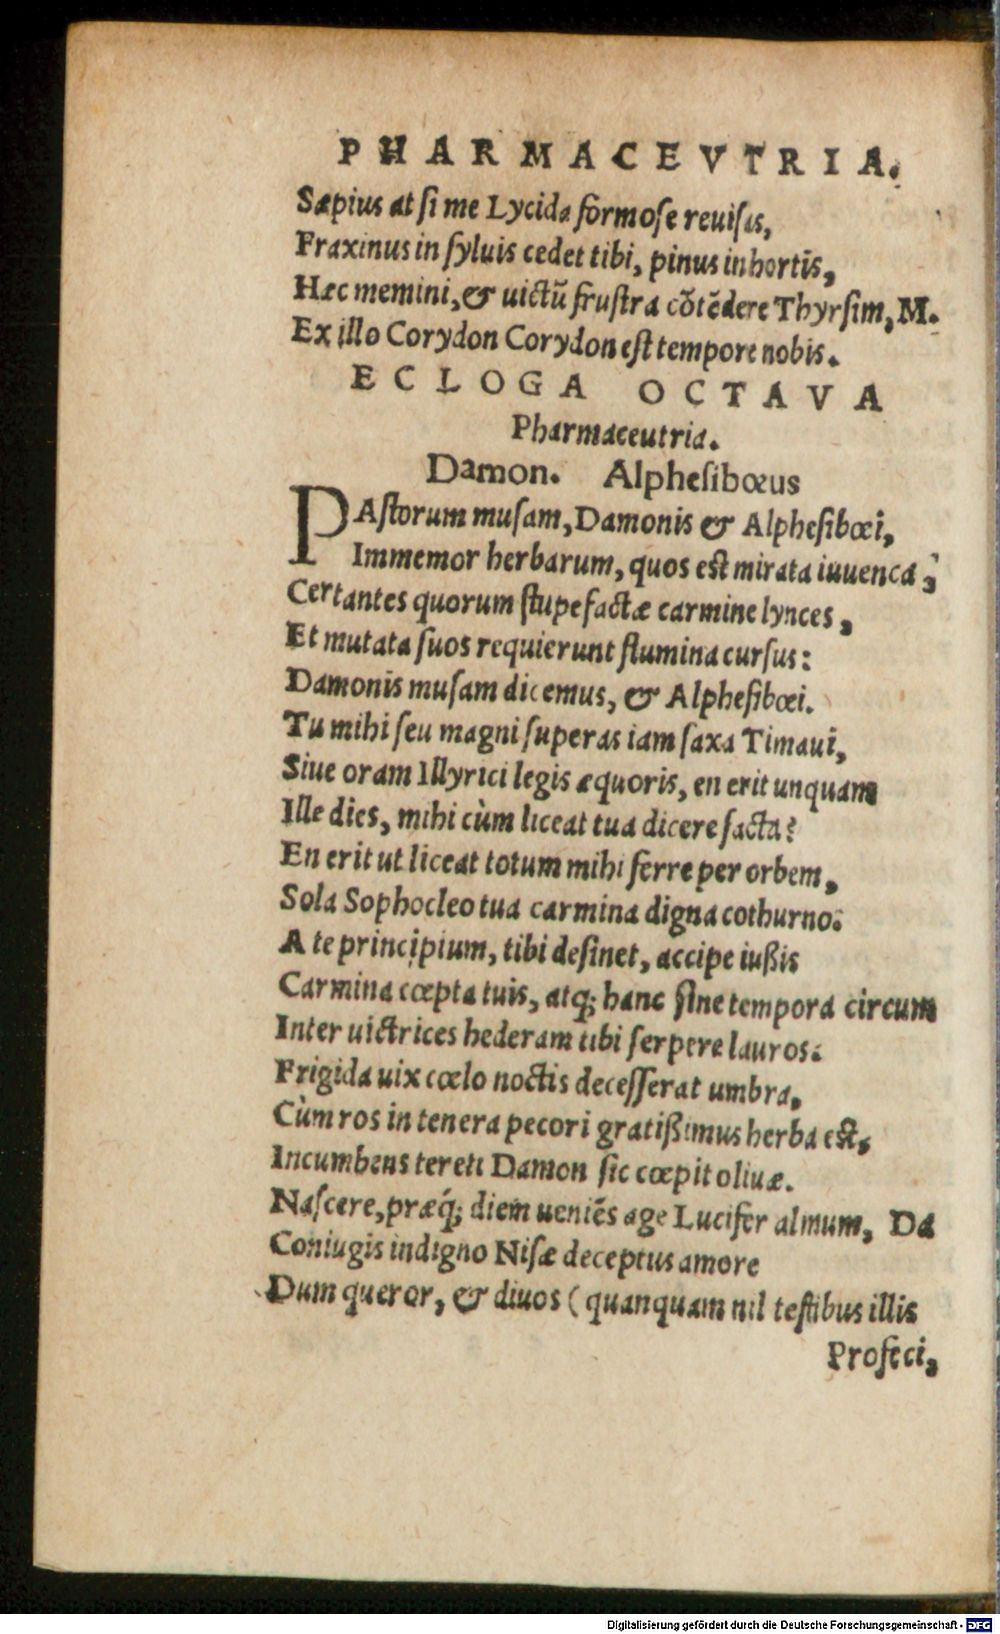 PHARMACEVTRIA.
Sæpius at ſi me Lycida formoſe reuiſis,
Fraxinus in ſyluis cedet tibi, pinus in hortis,
Hæc memini, & uictũ fruſtra cõtẽdere Thyrſim, M.
Ex illo Corydon Corydon eſt tempore nobis.
ECLOGA OCTAVA
Pharmaceutria.
Damon. Alpheſibœus
PAſtorum muſam, Damonis & Alpheſibœi,
Immemor herbarum, quos eſt mirata iuuenca,
Certantes quorum ſtupefactæ carmine lynces,
Et mutata ſuos requierunt flumina curſus:
Damonis muſam dicemus, & Alpheſibœi.
Tu mihi ſeu magni ſuperas iam ſaxa Timaui,
Siue oram Illyrici legis æquoris, en erit unquam
Ille dies, mihi cùm liceat tua dicere facta?
En erit ut liceat totum mihi ferre per orbem,
Sola Sophocleo tua carmina digna cothurno.
A te principium, tibi deſinet, accipe iußis
Carmina cœpta tuis, atq; hanc ſine tempora circum
Inter uictrices hederam tibi ſerpere lauros.
Frigida uix cœlo noctis deceſſerat umbra,
Cùm ros in tenera pecori gratißimus herba eſt,
Incumbens tereti Damon ſic cœpit oliuæ.
Naſcere, præq́; diem ueniẽs age Lucifer almum, Da
Coniugis indigno Niſæ deceptus amore
Dum queror, & diuos (quanquam nil teſtibus illis
Profeci,
Digitalisierung gefördert durch die Deutsche Forschungsgemeinschaft - DFG